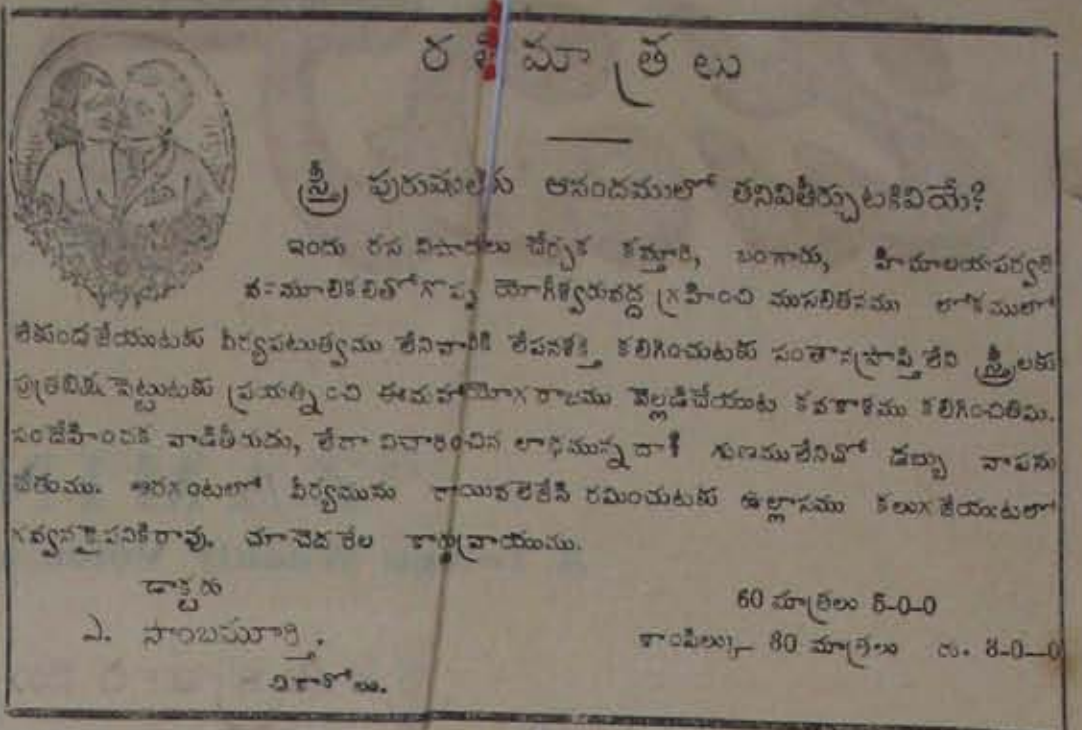 రతిమాత్రలు
స్త్రీ పురుషులకు ఆనందములో తనివితీర్చుటకివియే?
ఇందు రస చేర్చక కస్తూరి, బంగారు, హిమాలయపర్వత
వనమూలికలతోగొప్ప యోగీశ్వరువద్ద గ్రహించి ముసలితనము లోకములో
లేకుండజేయుటకు వీర్యపటుత్వము లేనివారికి లేపనశక్తి కలిగించుటకు సంతానప్రాప్తిలేని స్త్రీలకు
పుత్రభిక్ష పెట్టుటకు ప్రయత్నించి ఈమహాయోగరాజము వెల్లడిచేయుట కవకాశము కలిగించితిమి.
సందేహించక వాడితీరుడు, లేదా విచారించిన లాభమున్నదా? గుణములేనిచో డబ్బు వాపసు
చేతుము. అరగంటలో వీర్యమును రాయివలెజేసి రమించుటకు ఉల్లాసము కలుగజేయుటలో
చూచెదరేల కార్డువ్రాయుము.
డాక్టరు
ఎ. సాంబమూర్తి.
చికాకోలు.
60 మాత్రలు 5-0-0
శాంపిల్సు— 80 మాత్రలు రు. 8-0—0